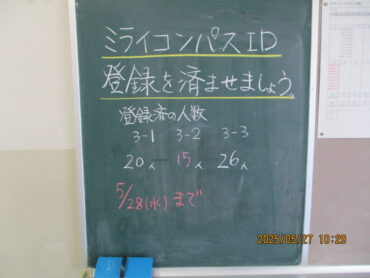 ミライコンパスID
登録を済ませましょう。
登録済の人数
3-1 3-2 3-3
20人 15人 26人
5/28(水)まで
2025/05/27 10:29